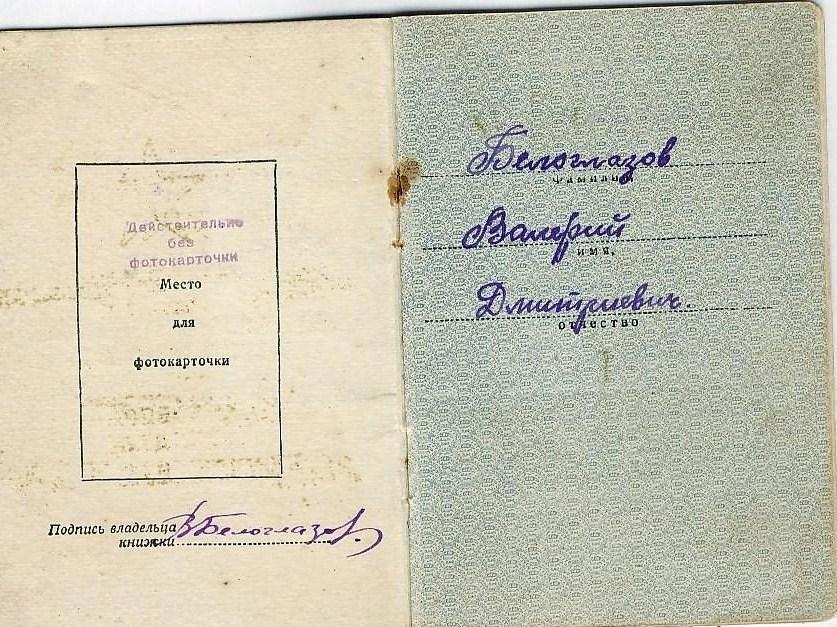 Действительно
без
фотокарточки
Место
для
фотокарточки
Подпись владельца
книжки ВБелоглазов.
Белоглазов
фамилия,
Валерий
имя,
Дмитриевич.
отчество